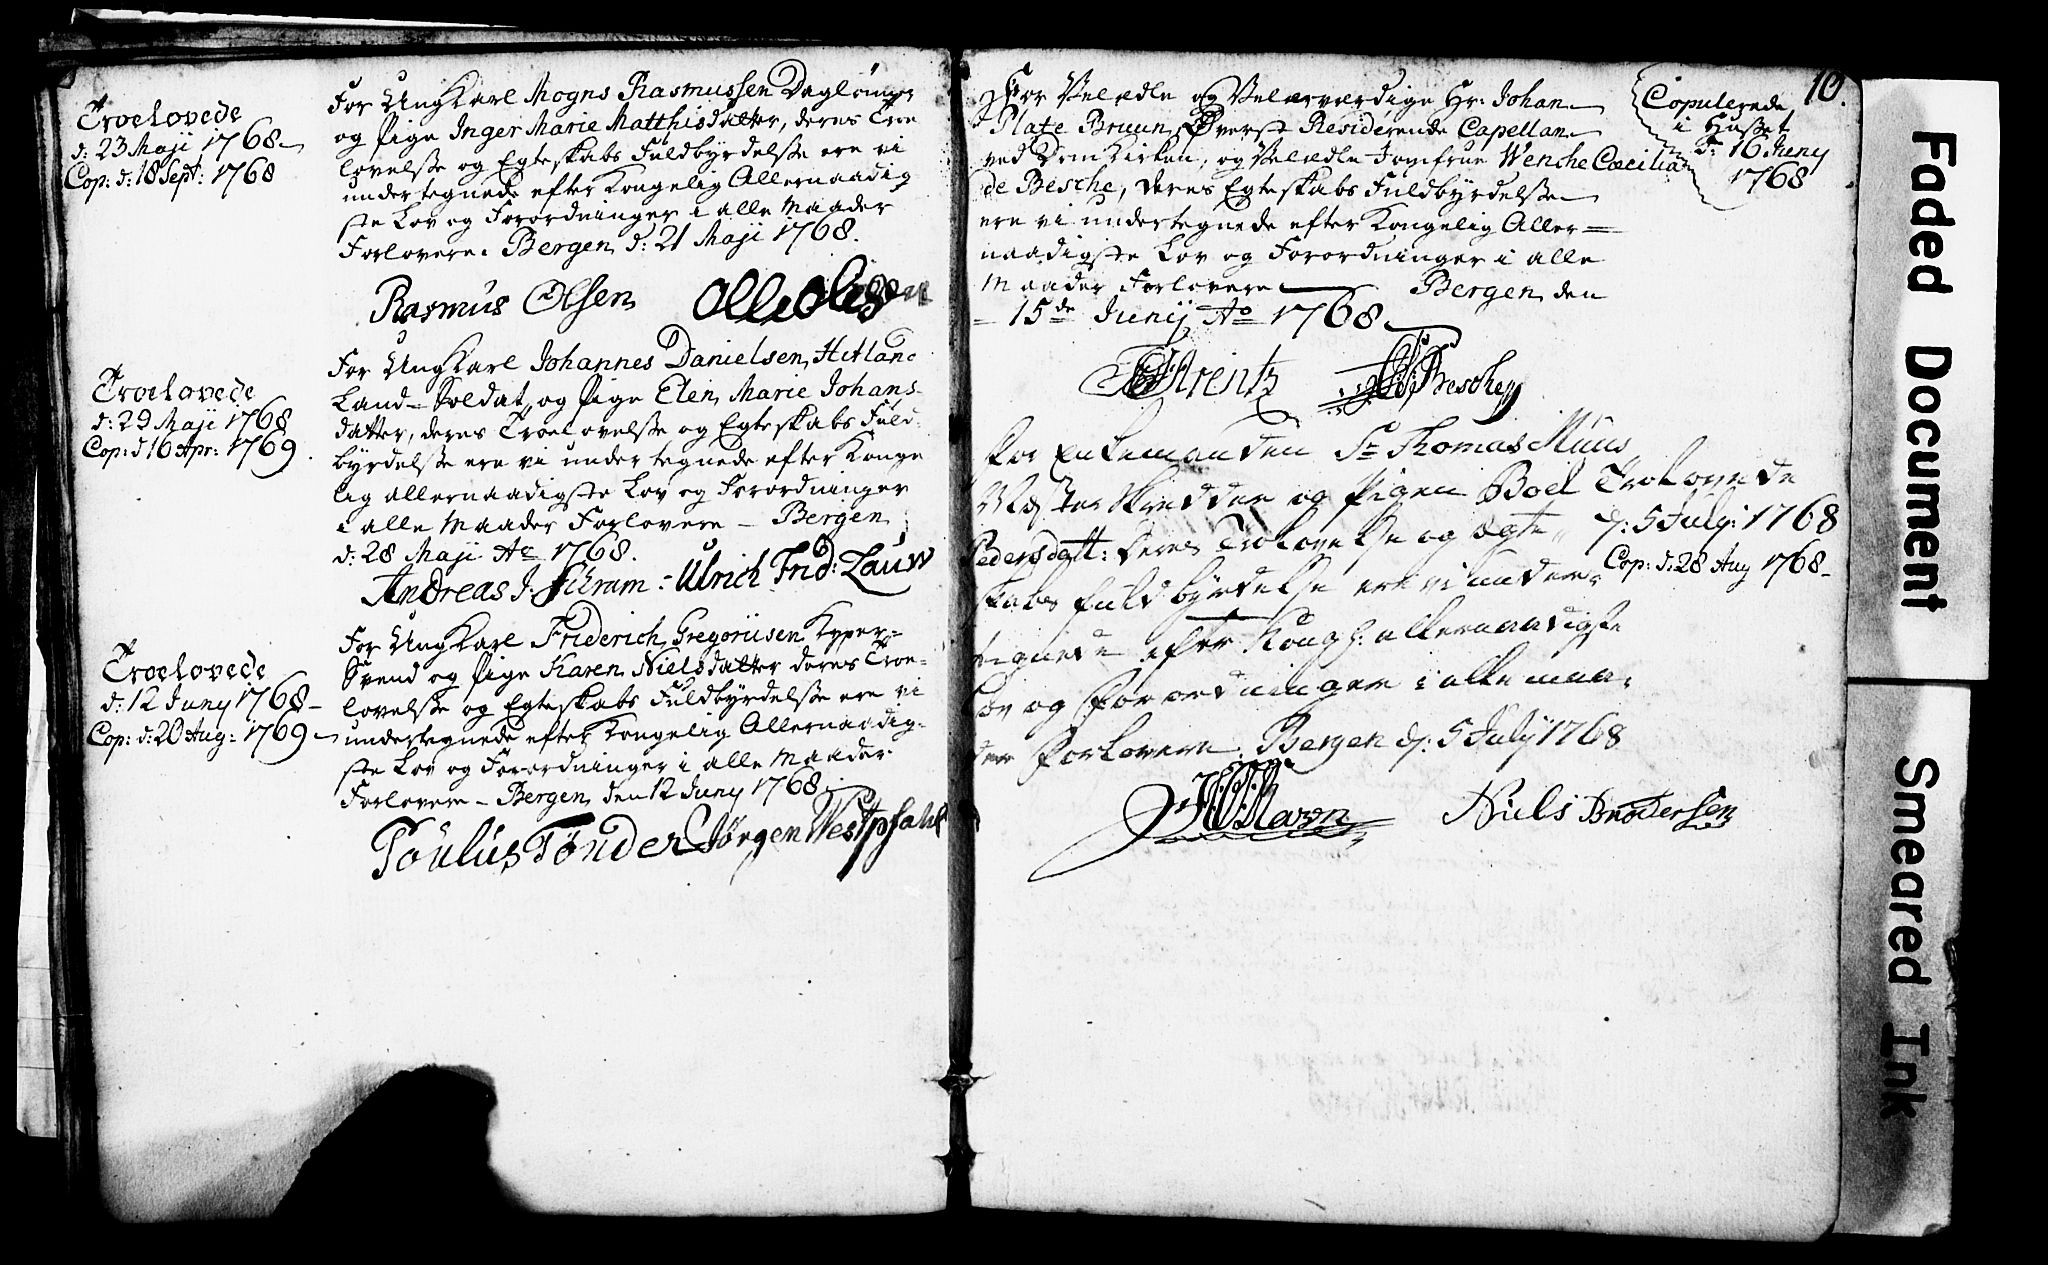 Troelovede
d: 23 Maji 1768
Cop: d: 18 Sept: 1768
For Ung Karl Mogns Rasmussen Dagløner
og Pige Inger Marie Matthisdatter, deres Troe
lovelsse og Egteskabs Fuldbyrdelsse ere vi
undertegnede efter Kongelig Allernaadig
ste Lov og Forordninger i alle Maader
Forlovere. Bergen d: 21 Maji 1768.
Rasmus Olsen Olle Olesen
Troelovede
d: 29 Maji 1768
Cop: d 16 Apr: 1769.
For Ung Karl Johannes Danielsen Hitland
Land-Soldat, og Pige Elen Marie Johans-
datter, deres Troelovelsse og Egteskabs Fuld-
byrdelsse ere vi undertegnede efter Konge
lig allernaadigste Lov og Forordninger
i alle Maader Forlovere - Bergen
d: 28 Maji Ao 1768.
Andreas J: Schram = Ulrich Frid: Lauw
Troelovede
d: 12 Juny 1768
Cop: d: 20 Aug: 1769
For Ung Karl Friderich Gregoriisen Kyper-
Svend og Pige Karen Nielsdatter deres Troe-
lovelsse og Egteskabs Fuldbyrdelsse ere vi
undertegnede efter Kongelig Allernaadig-
ste Lov og Forordninger i alle Maader
Forlovere - Bergen den 12 Juny 1768
Poulus Tønder Jørgen Westphahl
10.
For Velædle og Velærværdige Hr: Johan
Plate Bruun Øverst Residerende Capellan
ved Domkirken, og Velædle Jomfrue Wenche Cæcilia
de Besche, deres Egteskabs Fuldbyrdelsse
ere vi undertegnede efter Kongelig Aller=
naadigste Lov og Forordninger i alle
Maader Forlovere Bergen den
15de Junij Ao 1768
Copulerede
i Husset
d: 16 Juny
1768
Arentz Besche
For Enkemanden Sr Thomas Muus
Mester Skredder og Pigen Boel
Pedersdatt: deres Trolovelse og Ægte
skabs fuldbyrdelse ere vi under
tegnede efter Kongl: allernaadigste
Lov og Forordninger i alle maa
der Forlovere. Bergen d: 5 July 1768
Trolovede
d: 5 July: 1768
Cop: d: 28 Aug 1768
Niels
Faded Document
Smeared Ink